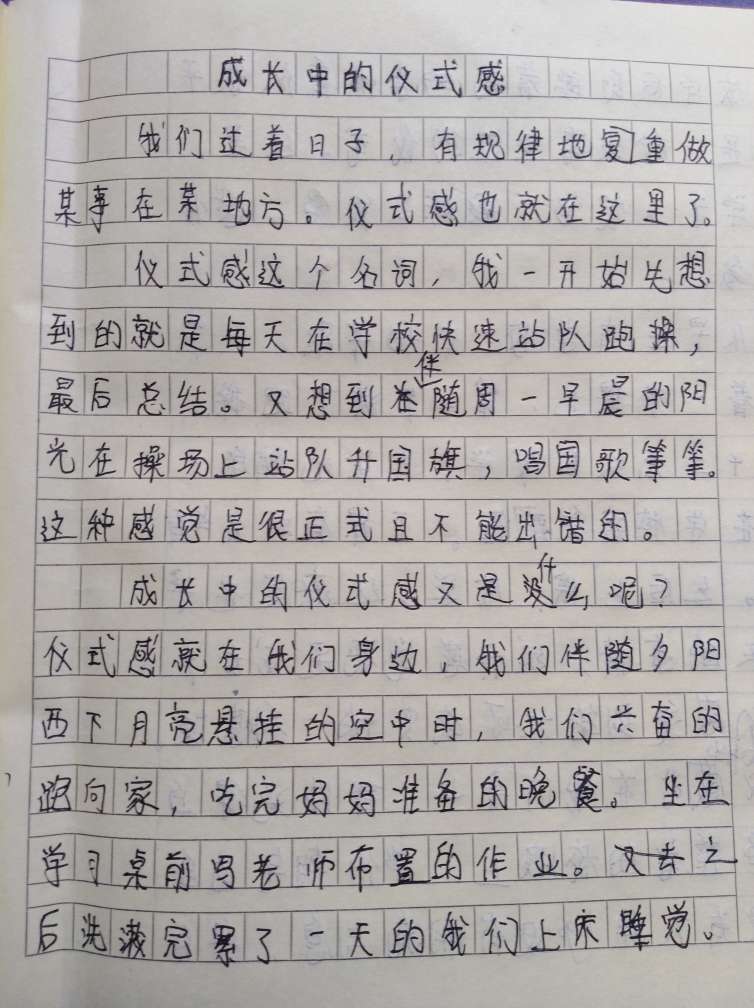 成长中的仪式感
我们过着日子，有规律地复重做
某事在某地方。仪式感也就在这里了。
仪式感这个名词，我一开始先想
到的就是每天在学校快速站队跑操，
最后总结。又想到伴随周一早晨的阳
光在操场上站队升国旗，唱国歌等等。
这种感觉是很正式且不能出错的。
成长中的仪式感又是什么呢？
仪式感就在我们身边，我们伴随夕阳
西下月亮悬挂的空中时，我们兴奋的
跑向家，吃完妈妈准备的晚餐。坐在
学习桌前写老师布置的作业。之
后洗漱完累了一天的我们上床睡觉。